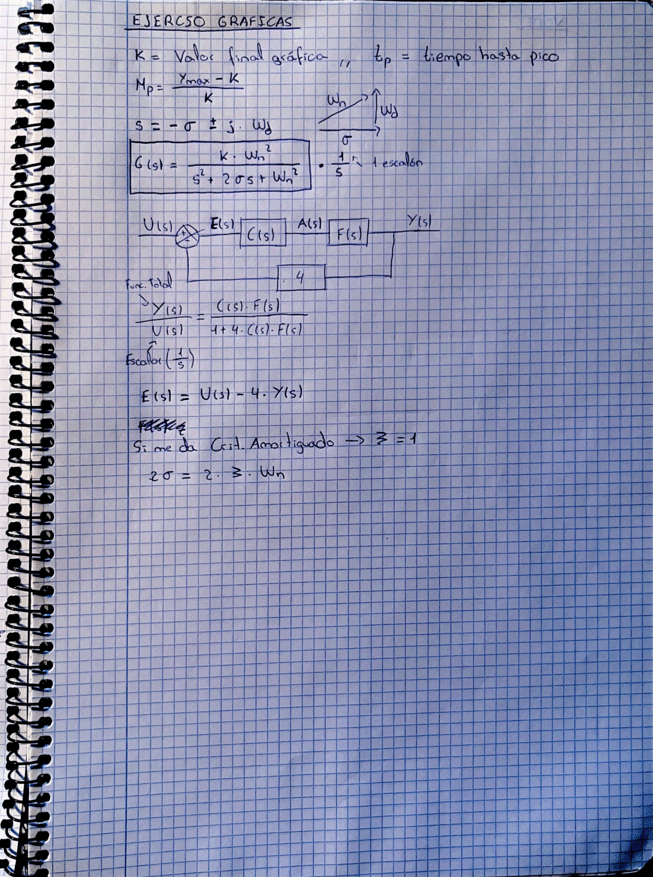 EJERCSO GRAFICAS
K = Valor final gráfica ,, tp = tiempo hasta pico
Mp = (Ymax - K) / K
s = -σ ± j · Wd
Wn Wd σ
G(s) = (K · Wn²) / (s² + 2σs + Wn²) · 1/s 1 escalón
U(s) E(s) C(s) A(s) F(s) Y(s)
4
Func. Total
Y(s) / U(s) = (C(s) · F(s)) / (1 + 4 · C(s) · F(s))
Escalón (1/s)
E(s) = U(s) - 4 · Y(s)
Si me da Crit. Amortiguado → ξ = 1
2σ = 2 · ξ · Wn